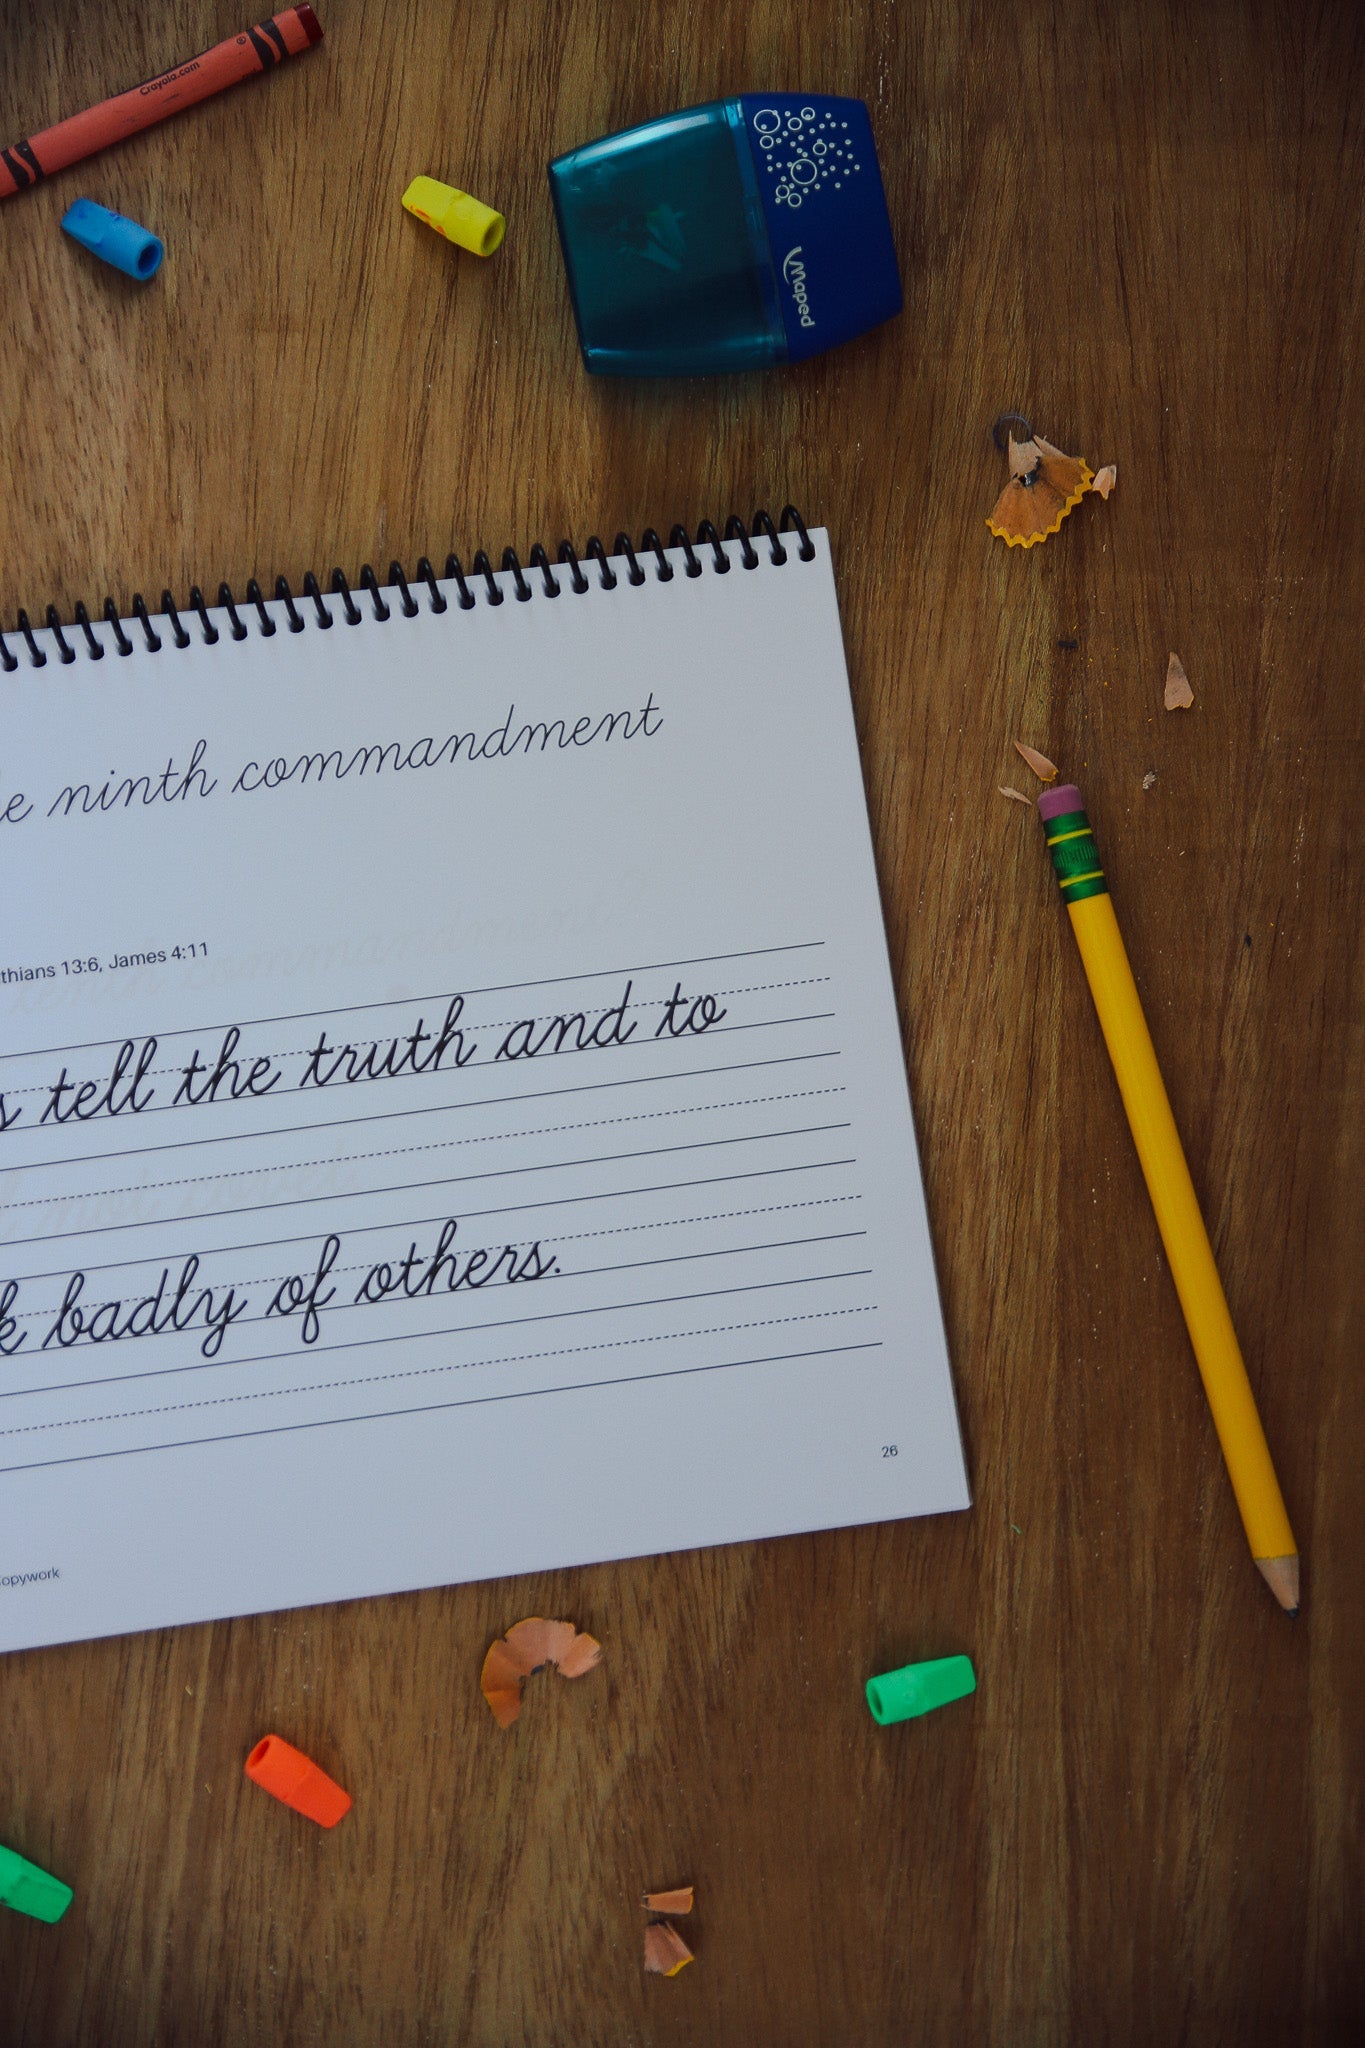 Crayola.com
Maped
e ninth commandment
thians 13:6, James 4:11
s tell the truth and to
k badly of others.
26
opywork